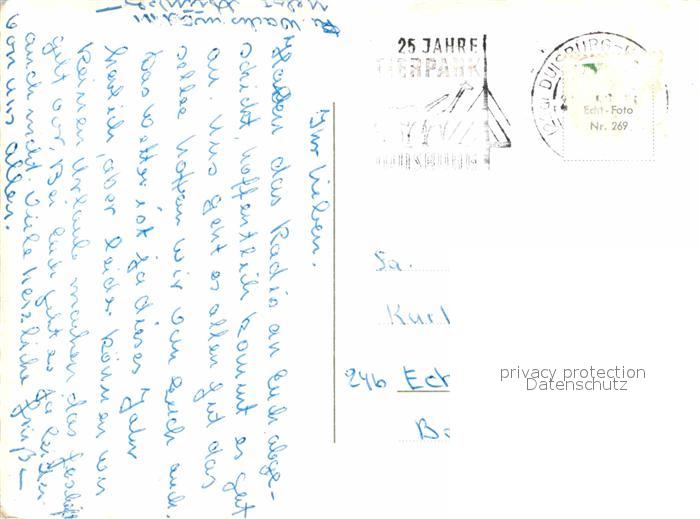 Ihr Lieben.
Haben das Radio an Euch abge-
schickt, hoffentlich kommt es gut
an. Uns geht es allen gut das
selbe hoffen wir von Euch auch.
Das Wetter ist ja dieses Jahr
herrlich, aber leider können wir
keinen Urlaub machen das
geht vor, Bei Euch geht es ja leider
auch nicht Viele herzliche Grüße
von uns allen.
25 JAHRE
TIERPARK
DUISBURG
DUISBURG
Echt-Foto
Nr. 269
Fa.
Kurl
246 Eck
privacy protection
Datenschutz